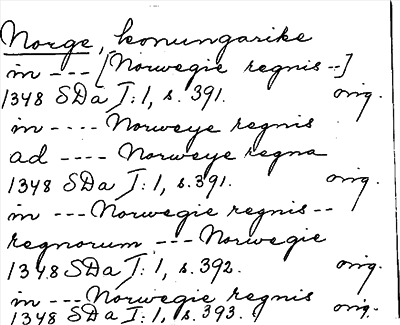 Norge, konungarike
in --- [Norwegie regnis --]
1348 SDa I:1, s. 391. orig.
in ---- Norweye regnis
ad ---- Norweye regna
1348 SDa I:1, s. 391. orig.
in --- Norwegie regnis --
regnorum --- Norwegie
1348 SDa I:1, s. 392. orig.
in --- Norwegie regnis
1348 SDa I:1, s. 393. orig.